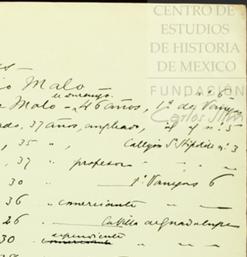 CENTRO DE
ESTUDIOS
DE HISTORIA
DE MEXICO
FUNDACIÓN
Carlos Slim
Malo
Malo - 46 años, 1ª de Vanegas
37 años, empleado, id id n. 5
35 " Callejón S. Hipólito n. 3
37 " profesor " " "
30 " 1ª Vanegas 6
36 " comerciante " "
26 " Cabilla de Guadalupe
dependiente
30 " comerciante " "